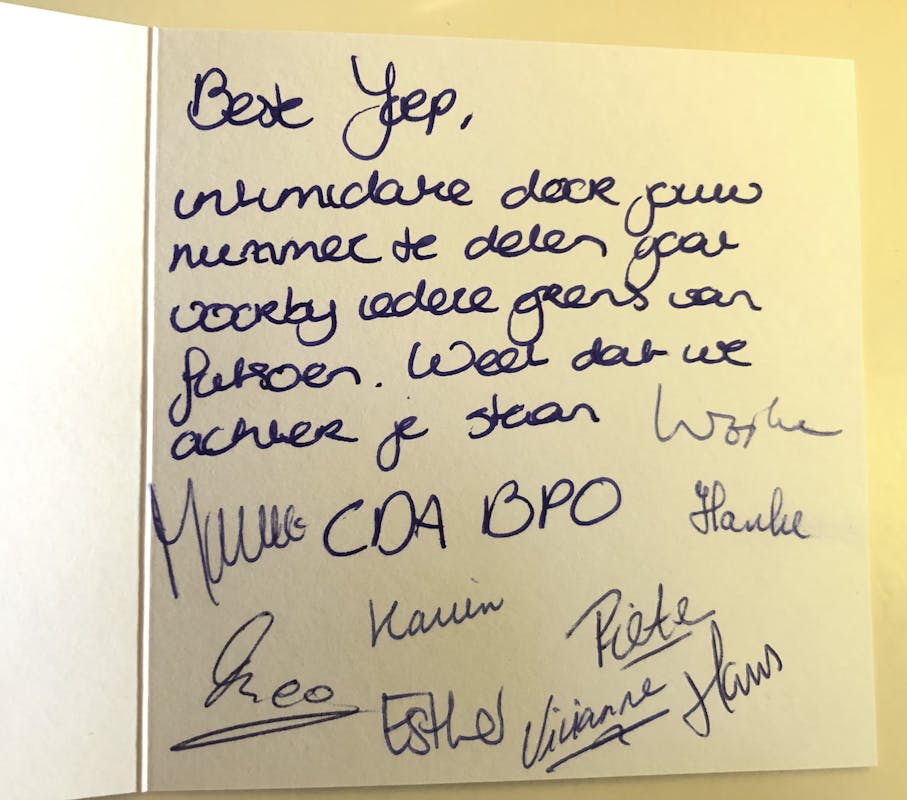 Beste Yoep,
intimidatie door jouw
nummer te delen gaat
voorby iedere grens van
fatsoen. Weet dat we
achter je staan
CDA BPO
Hanke
Karin
Piete
Theo
Esther
Vivianne
Hans